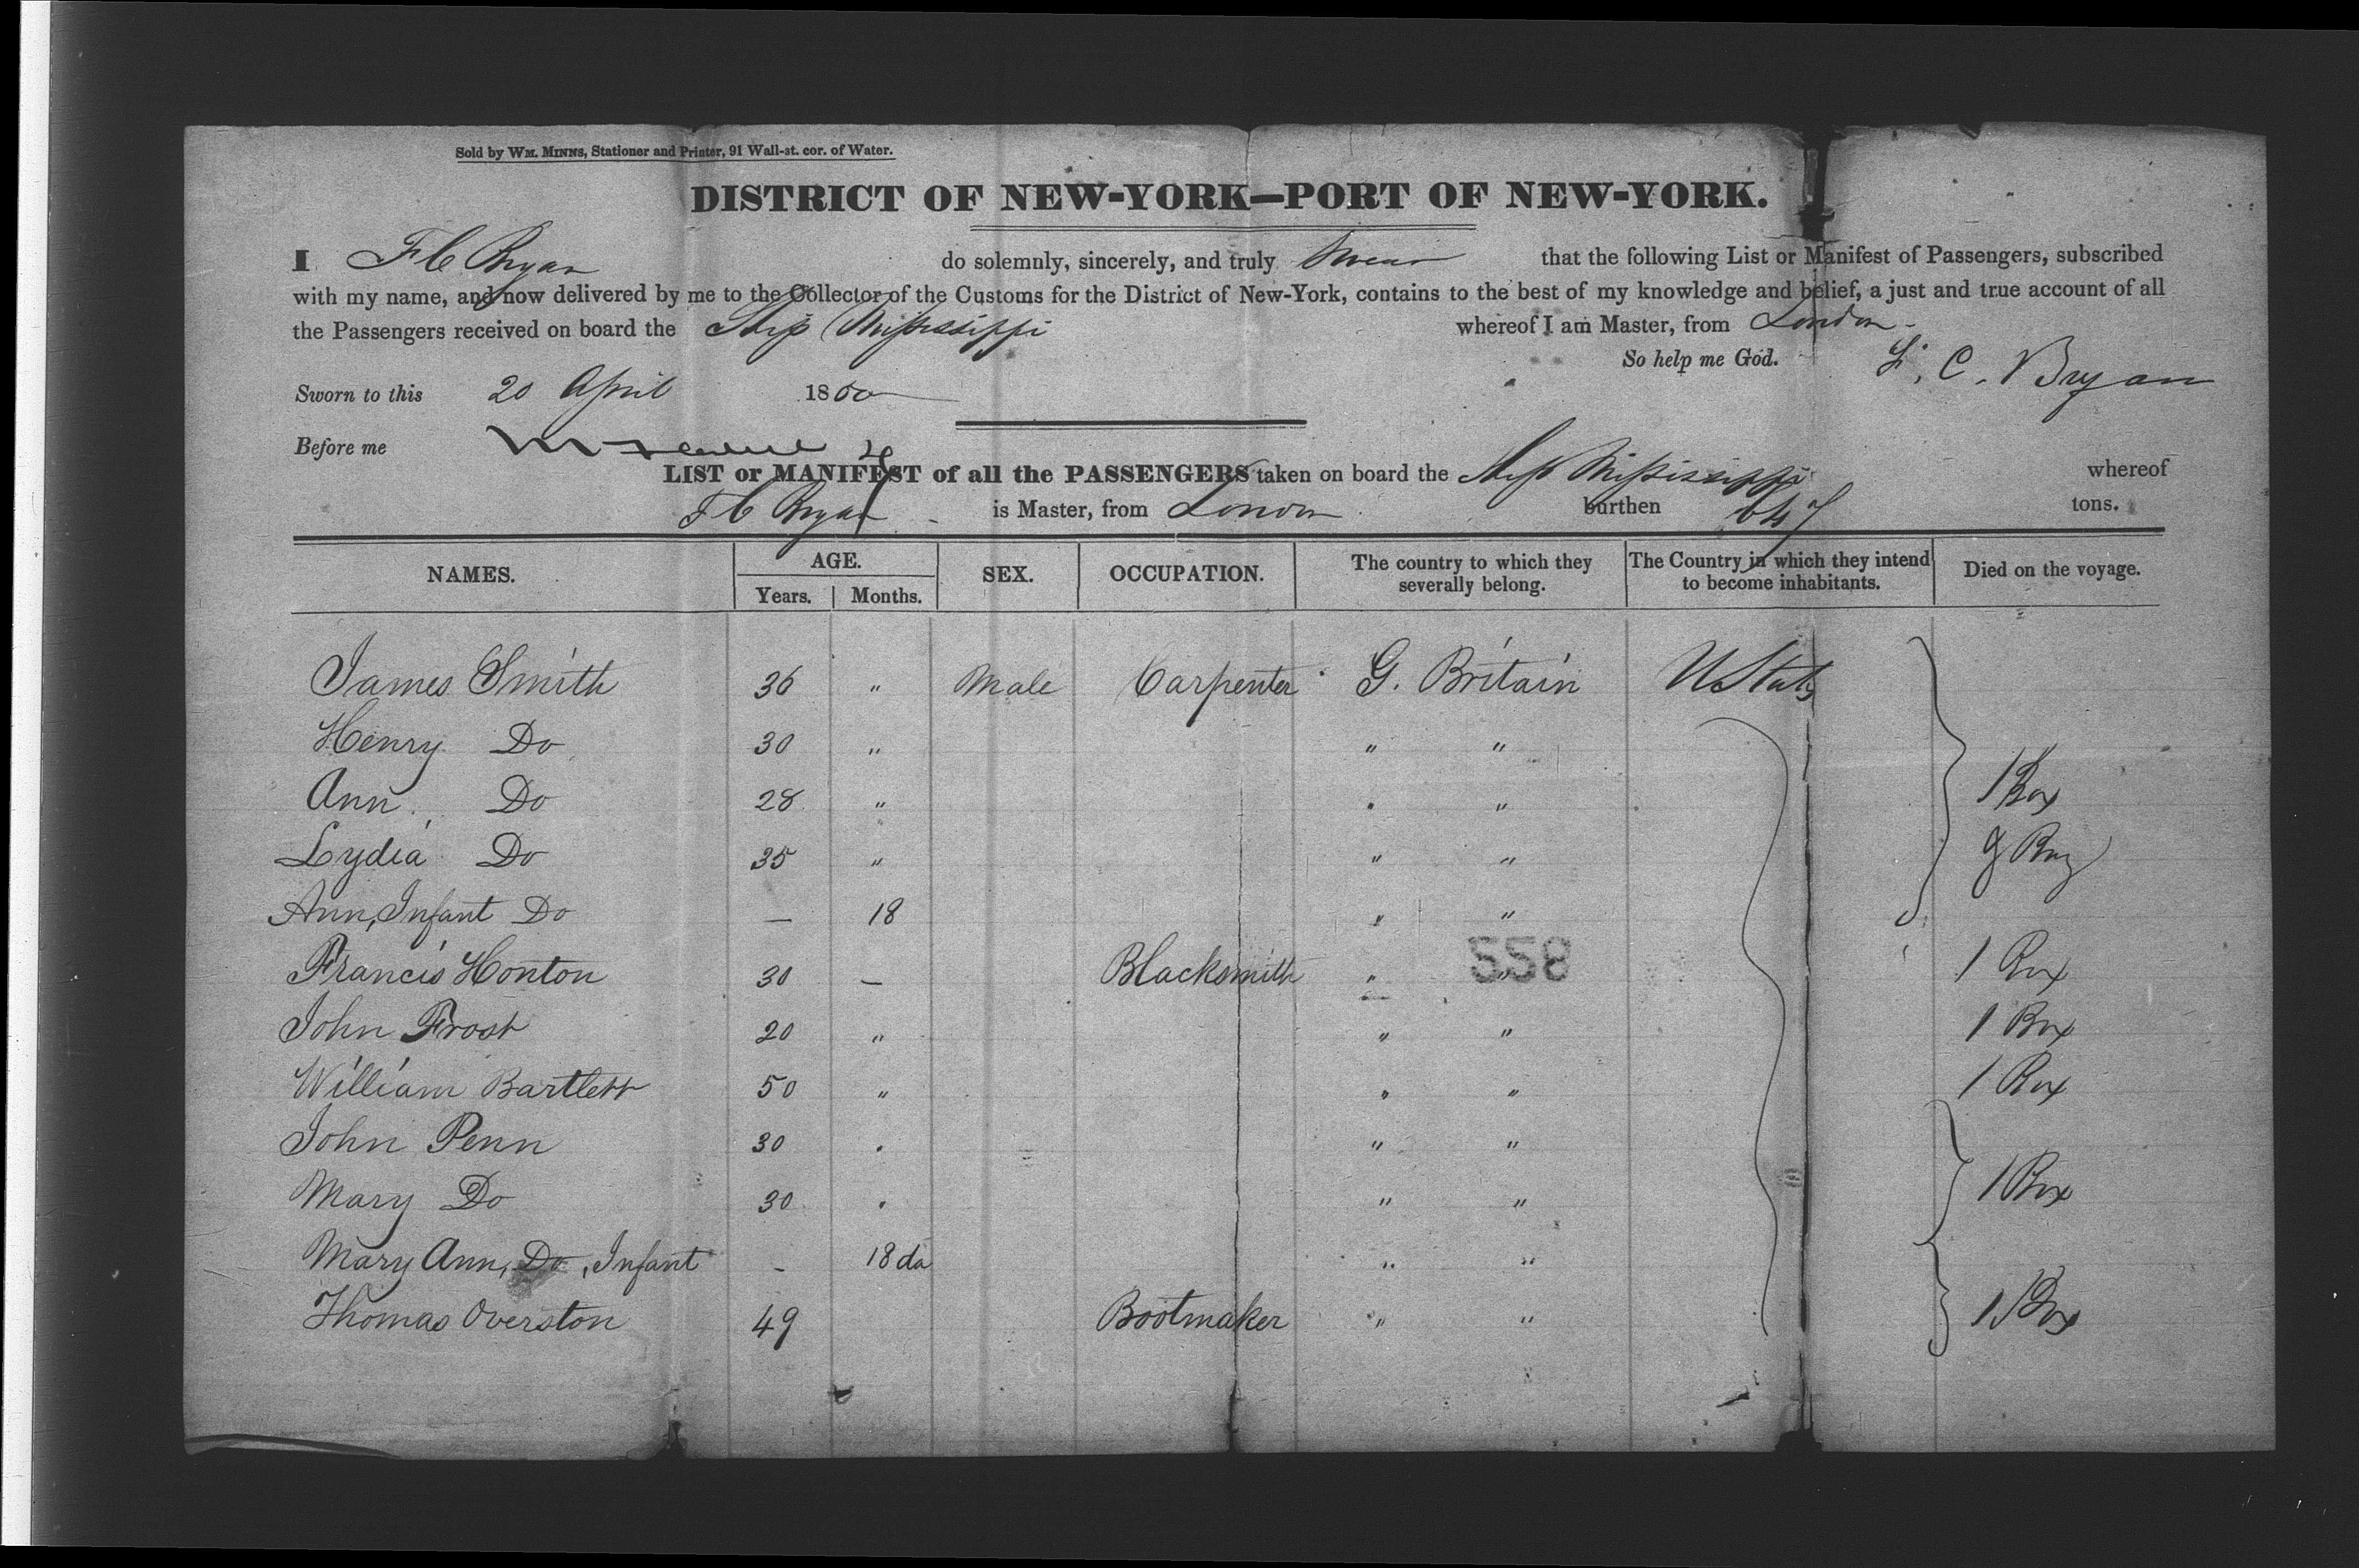 Sold by WM. MINNS, Stationer and Printer, 91 Wall-st. cor. of Water.
DISTRICT OF NEW-YORK—PORT OF NEW-YORK.
I F C Bryan do solemnly, sincerely, and truly swear that the following List or Manifest of Passengers, subscribed
with my name, and now delivered by me to the Collector of the Customs for the District of New-York, contains to the best of my knowledge and belief, a just and true account of all
the Passengers received on board the Ship Mississippi whereof I am Master, from London
So help me God. F. C. Bryan
Sworn to this 20 April 1850
Before me
LIST or MANIFEST of all the PASSENGERS taken on board the Ship Mississippi whereof
F C Bryan is Master, from London burthen 647 tons.
NAMES. AGE. Years. Months. SEX. OCCUPATION. The country to which they severally belong. The Country in which they intend to become inhabitants. Died on the voyage.
James Smith 36 " Male Carpenter G. Britain U States
Henry Do 30 " " "
Ann Do 28 " " " 1 Box
Lydia Do 35 " " "
Ann, Infant Do — 18 " "
Francis Honton 30 — Blacksmith " " 1 Box
228
John Frost 20 " " " 1 Box
William Bartlett 50 " " " 1 Box
John Penn 30 " " "
Mary Do 30 " " " 1 Box
Mary Ann, Do, Infant - 18 da " "
Thomas Overston 49 Bootmaker " " 1 Box